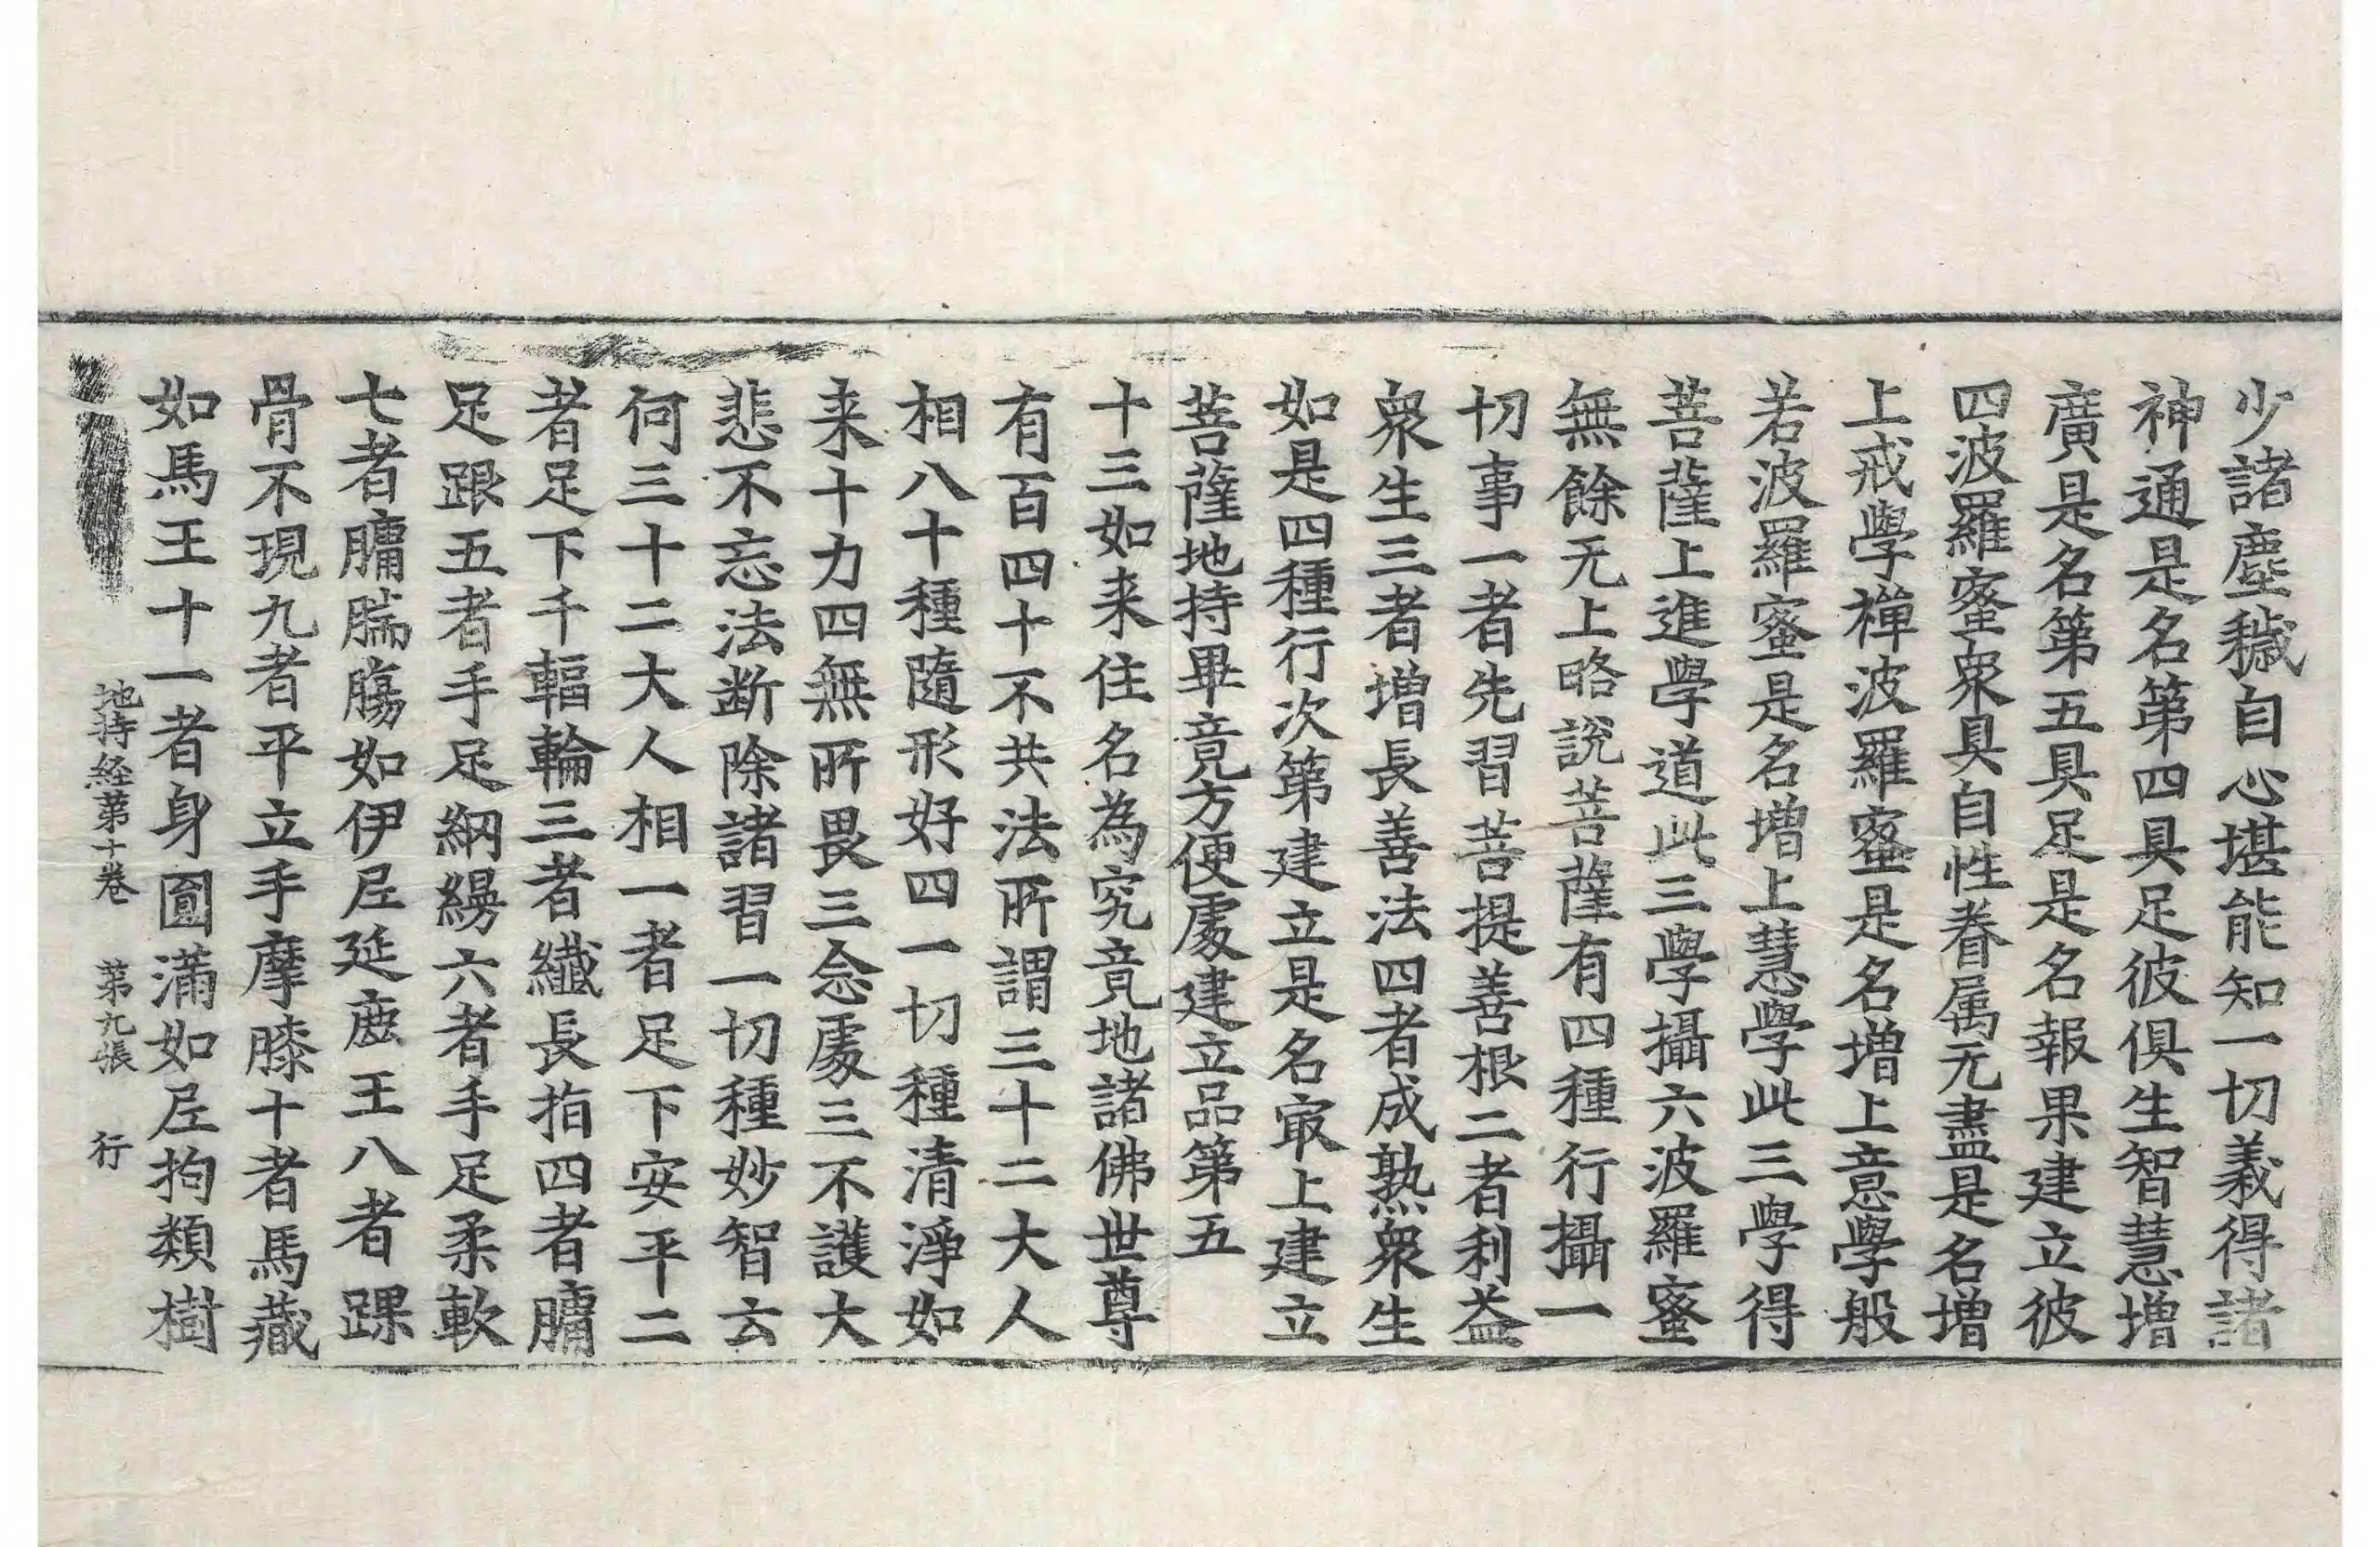 少諸塵穢自心堪能知一切義得諸
神通是名第四具足彼俱生智慧增
廣是名第五具足是名報果建立彼
四波羅蜜衆具自性眷属无盡是名增
上戒學禪波羅蜜是名增上意學般
若波羅蜜是名增上慧學此三學得
菩薩上進學道此三學攝六波羅蜜
無餘无上略說菩薩有四種行攝一
切事一者先習菩提善根二者利益
衆生三者增長善法四者成熟衆生
如是四種行次第建立是名冣上建立
菩薩地持畢竟方便處建立品第五
十三如来住名為究竟地諸佛世尊
有百四十不共法所謂三十二大人
相八十種隨形好四一切種清淨如
来十力四無所畏三念處三不護大
悲不忘法断除諸習一切種妙智云
何三十二大人相一者足下安平二
者足下千輻輪三者纖長指四者𦟛
足跟五者手足網縵六者手足柔軟
七者𦟛腨膓如伊尼延鹿王八者踝
骨不現九者平立手摩膝十者馬藏
如馬王十一者身圓滿如尼拘類樹
地持経第十卷 第九張 行